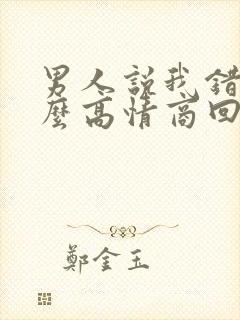 男人說我錯
麼高情商回
鄭金玉